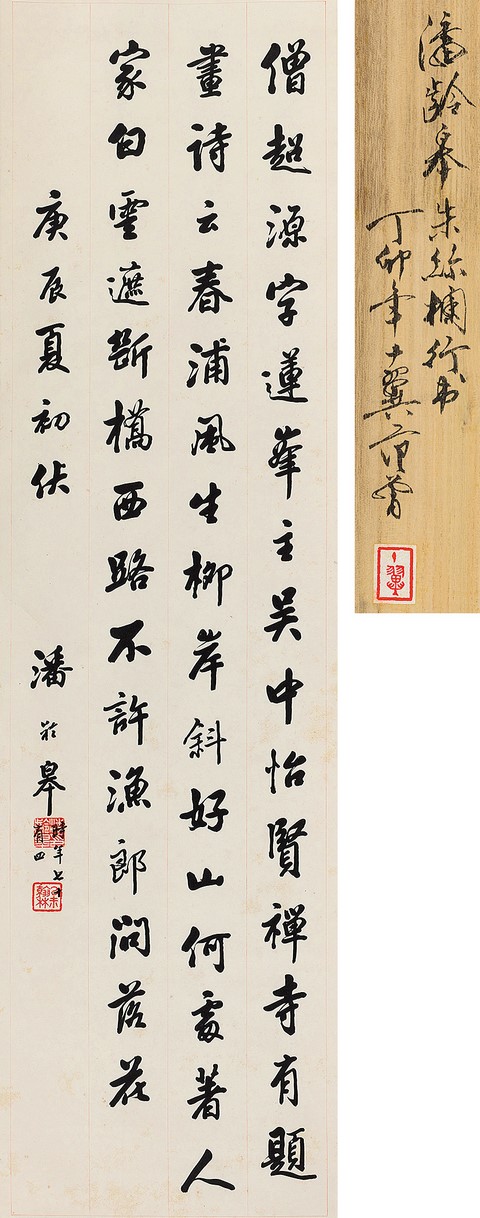 僧超源字蓮峯主吴中怡賢禪寺有題
畫詩云春浦風生柳岸斜好山何處著人
家白雲遮斷橋西路不許漁郎問落花
庚辰夏初伏 潘齡皋
時年七十
有四
潘齡皋朱絲欄行書
丁卯年十翼范曾
十翼